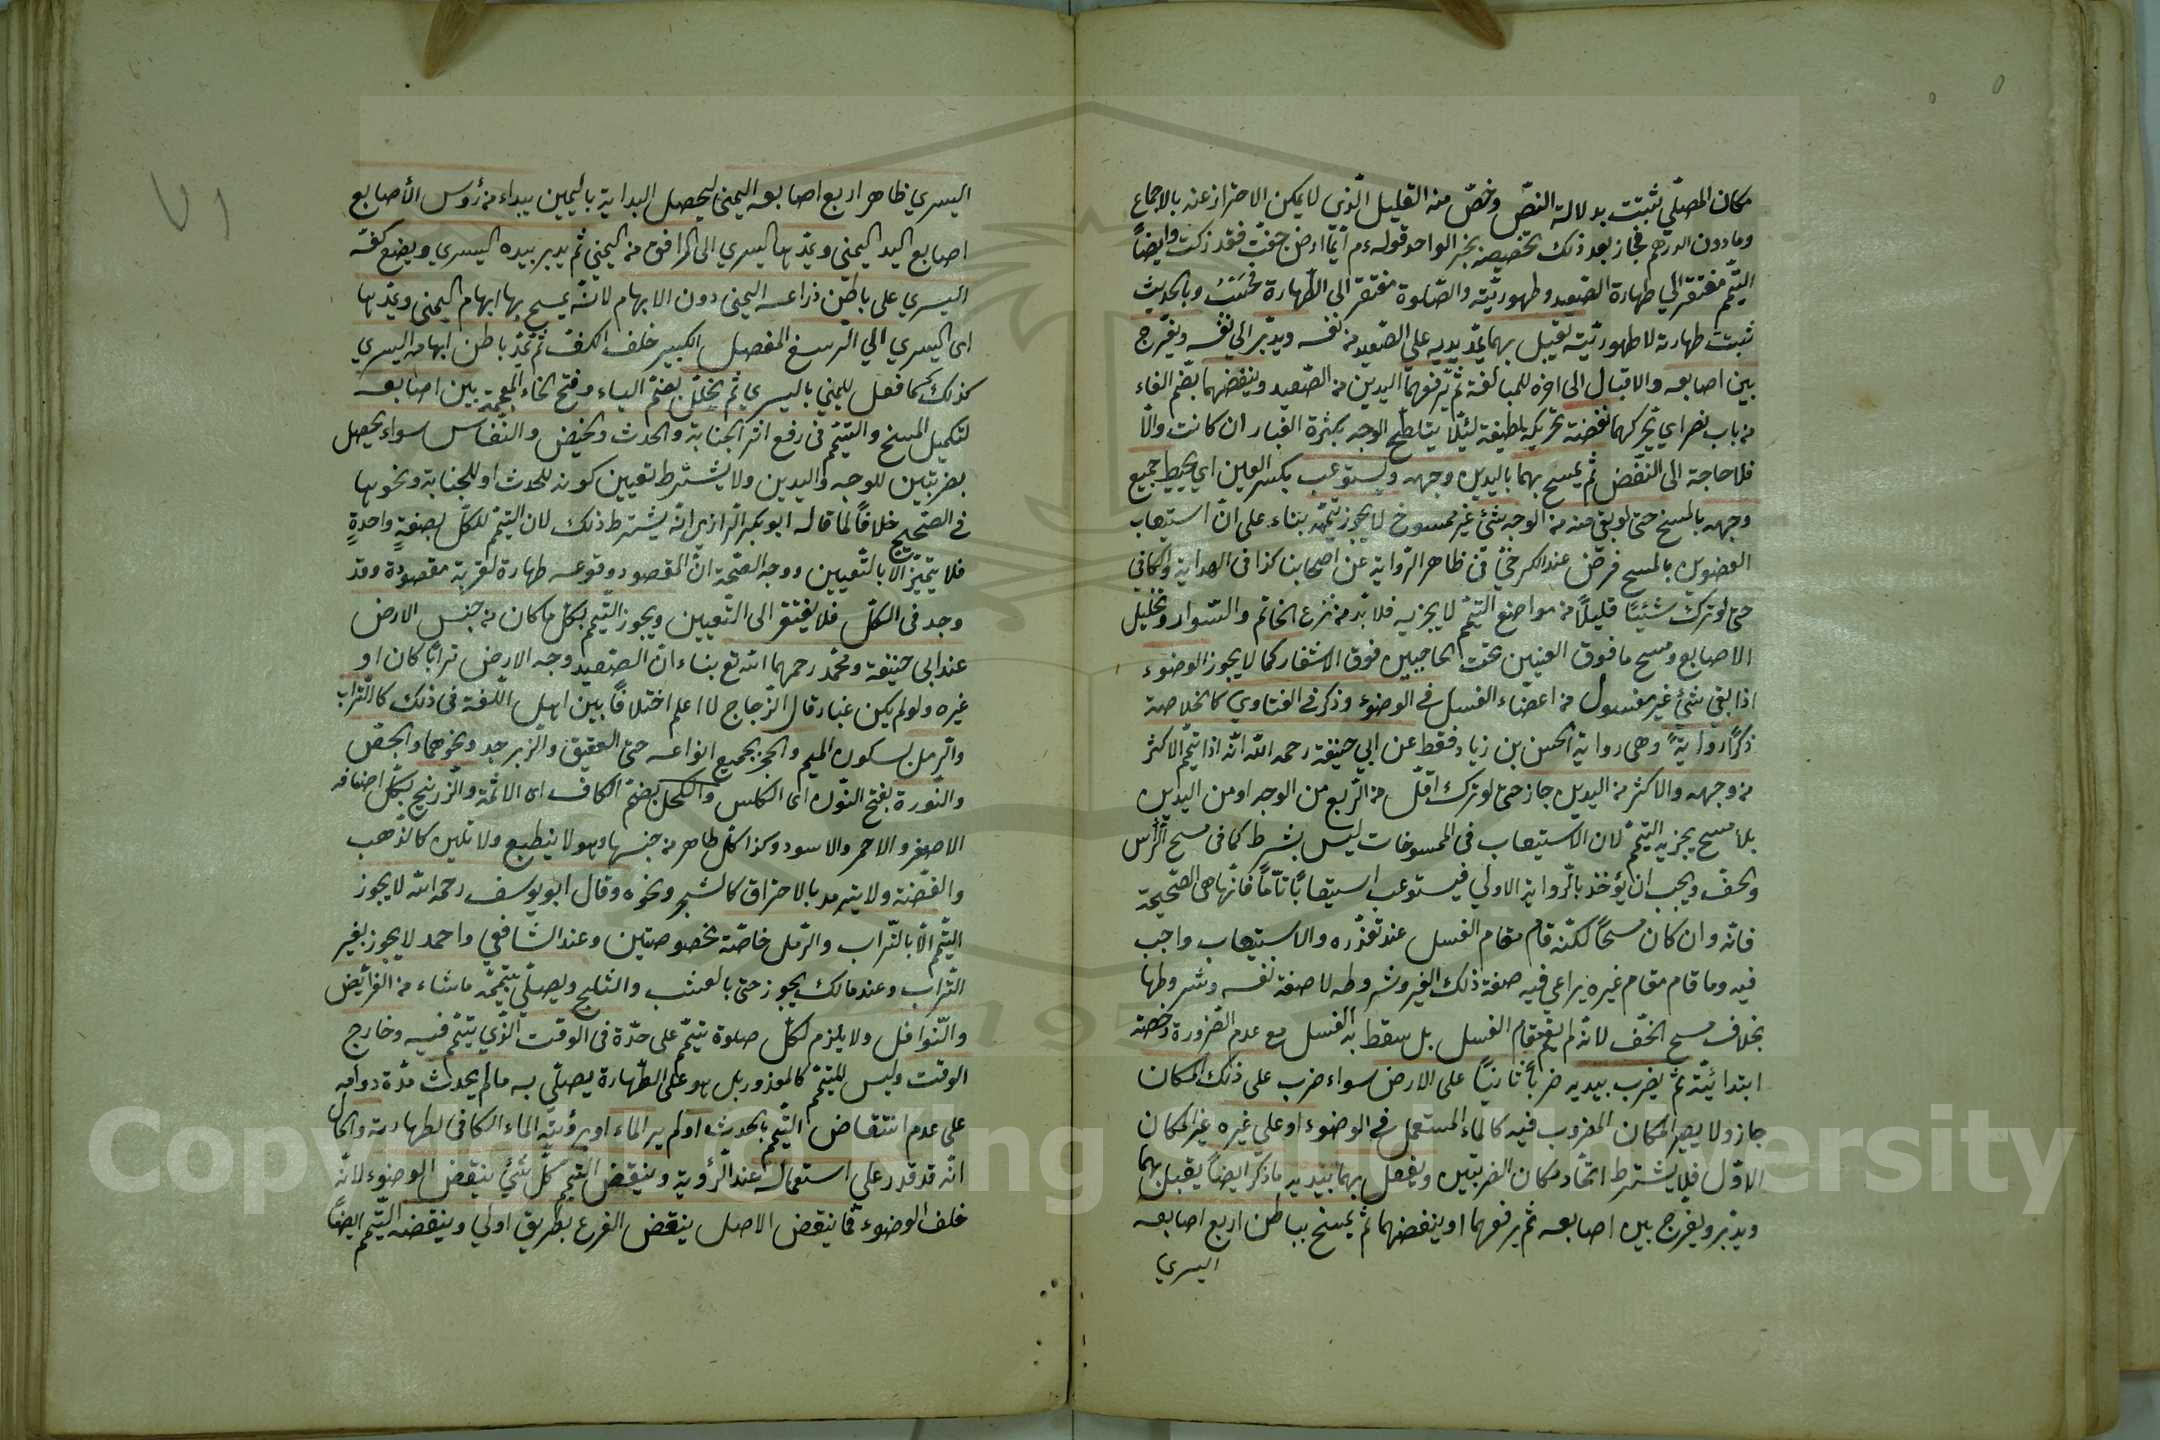 مكان المصلّي ثبتت بدلالة النصّ وخصّ منه القليل الّذي لا يمكن الاحتراز عنه بالاجماع
وما دون الدرهم فجاز بعد ذلك تخصيصه بخبر الواحد قوله ءم ايّما ارض جفّت فقد زكت وايضاً
التيمّم مفتقر الي طهارة الصّعيد وطهوريّته والصّلوة مفتقر الى الطّهارة فحَسْبُ وبالحديث
ثبت طهارته لا طهوريّته يقبل بهما يمدّ يديه على الصّعيد من نفسه ويدبّر الي نفسه ويفرّج
بين اصابعه والاقبال الى اخره للمبالغة ثمّ يرفعهما اليدين من الصّعيد وينفضهما بضم الفاء
من باب نصر اي يحركهما نفضة تحريكة لطيفة لئلّا يتلطّخ الوجه بكثرة الغبار ان كانت والّا
فلا حاجة الى النّفض ثم يمسح بهما باليدين وجهه ويستوعب بكسر العين اي يحيط جميع
وجهه بالمسح حتى لو بقي منه من الوجه شئ غير ممسوح لا يجوز تيمّمه بناء على انّ استيعاب
العضوين بالمسح فرض عند الكرخيّ في ظاهر الرّواية عن اصحابنا كذا في الهداية والكافي
حتى لو ترك شيئًا قليلًا من مواضع التيمّم لا يجزيه فلا بدّ من نزع الخاتم والسّوار وتخليل
الاصابع ومسح ما فوق العينين تحت الحاجبين فوق الاشفار كما لا يجوز الوضوء
اذا بقي شئ غير مغسول من اعضاء الغسل في الوضوء وذكر في الفتاوي كالخلاصة
ذكرًا رواية وهي رواية الحسن بن زياد فقط عن ابي حنيفة رحمه الله انّه اذا تيمّم الاكثر
من وجهه والاكثر من اليدين جاز حتى لو ترك اقلّ من الرّبع من الوجه او من اليدين
بلا مسح يجزيه التيمّم لان الاستيعاب في الممسوحات ليس بشرط كما في مسح الرّأس
والخفّ ويجب ان يؤخذ بالرّواية الاولي فيستوعب استيعابًا تامّاً فانّها هي الصّحيحة
فانّه وان كان مسحاً لكنّه قام مقام الغسل عند تعذّره والاستيعاب واجب
فيه وما قام مقام غيره يراعي فيه صفة ذلك الغير وشروطه لا صفة نفسه وشروطها
بخلاف مسح الخفّ لانّه لم يقم مقام الغسل بل سقط به الغسل مع عدم الضّرورة رخصة
ابتدائيّة ثمّ يضرب بيديه ضرباً ثانيًا على الارض سواء ضرب على ذلك المكان
جاز ولا يصير المكان المضروب فيه كالماء المستعمل في الوضوء او علي غيره غير المكان
الاوّل فلا يشترط اتّحاد مكان الضربتين ويفعل بهما بيديه ما ذكر ايضاً يقبل بهما
ويدبّر ويفرج بين اصابعه ثم يرفعهما او ينفضهما ثمّ يمسح بباطن اربع اصابعه
اليسري
اليسري ظاهر اربع اصابعه اليمنى ليحصل البداية باليمين يبداء من رؤس الأصابع
اصابع اليد اليمنى ويمدّها اليسري الى المرافق من اليمني ثم يدير بيده اليسري ويضع كفّه
اليسري على باطن ذراعه اليمنى دون الابهام لانّه يمسح بها ابهام اليمنى ويمدّها
اى اليسري الي الرّسغ المفصل الكبير خلف الكفّ ثمّ يمدّ باطن ابهامه اليسري
كذلك كما فعل لليمني باليسري ثم يخلّل بضمّ الياء وفتح الخاء المعجمة بين اصابعه
لتكميل المسح والتيمّم في رفع اثر الجنابة والحدث والحيض والنّفاس سواء يحصل
بضربتين للوجه واليدين ولا يشترط تعيين كونه للحدث او للجنابة ونحوها
في الصّحيح خلافاً لما قاله ابو بكر الرّازي انّه يشترط ذلك لان التيمّم للكلّ بصفةٍ واحدةٍ
فلا يتميّز الّا بالتّعيين ووجه الصّحة انّ المقصود وقوعه طهارة لقربة مقصودة وقد
وجد في الكلّ فلا يفتقر الى التّعيين ويجوز التّيمم بكلّ ما كان من جنس الارض
عند ابي حنيفة ومحمّد رحمهما الله تع بناء انّ الصّعيد وجه الارض ترابًا كان او
غيره ولو لم يكن غبار قال الزّجاج لا اعلم اختلافاً بين اهل اللّغة في ذلك كالتّراب
والرّمل بسكون الميم والحجر بجميع انواعه حتى العقيق والزّبرجد ونحوهما والجصّ
والنّورة بفتح النّون اى الكلس والكحل بضمّ الكاف اى الاثمد والزّرنيخ بكلّ اصنافه
الاصفر والاحمر والاسود وكذا كلّ طاهر من جنسها وهو لا ينطبع ولا تلين كالذّهب
والفضّة ولا يترمد بالاحتراق كالشجر ونحوه وقال ابو يوسف رحمه الله لا يجوز
التيمّم الّا بالتّراب والرّمل خاصّة بخصوصيتين وعند الشافعي واحمد لا يجوز بغير
التّراب وعند مالك يجوز حتى بالعشب والثلج ويصلّي بتيمّمه ما شاء من الفرائض
والنّوافل ولا يلزم لكلّ صلوة تيمّم على حدّة في الوقت الّذي يتيمّم فيه وخارج
الوقت وليس للمتيمّم كالمعذور بل هو على الطّهارة يصلّي به ما لم يحدث مدّة دوامه
على عدم انتقاض التّيمم بالحدث او لم ير الماء او برؤية الماء الكافي لطهارته والحال
انّه قد قدر على استعماله عند الرّؤية وينقض التيمم كلّ شئ ينقض الوضوء لانّه
خلف الوضوء فما ينقض الاصل ينقض الفرع بطريق اولي وينقضه التّيمم ايضاً
Copyright © King Saud University